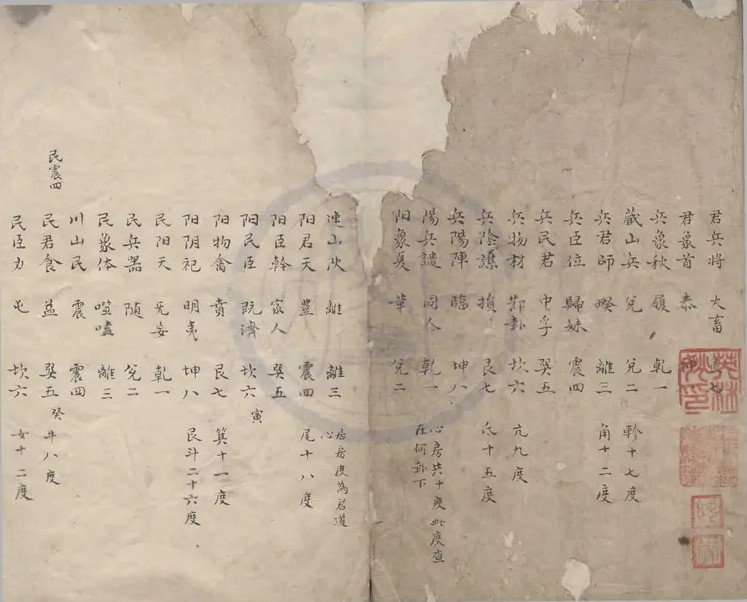 君兵將 大畜 七
君象首 泰 坤
兵象秋 履 乾一
藏山兵 兌 兌二 軫十七度
兵君師 睽 離三 角十二度
兵臣位 歸妹 震四
兵民君 中孚 巽五
兵物材 節卦 坎六 亢九度
兵陰謀 損 艮七 氐十五度
兵陽陣 臨 坤八
陽兵譴 同人 乾一 心房共十度此度查
在何卦下
阳象夏 革 兌二
連山 離 離三 居房度為君道
心
阳君天 豊 震四 尾十八度
阳臣幹 家人 巽五
阳民臣 既濟 坎六 寅
阳物禽 賁 艮七 箕十一度
阳阴祀 明夷 坤八 艮斗二十六度
民阳天 无妄 乾一
民兵器 随 兌二
民象体 噬嗑 離三
川山民 震 震四
民震四
民君食 益 巽五 癸 牛八度
民臣力 屯 坎六 女十二度